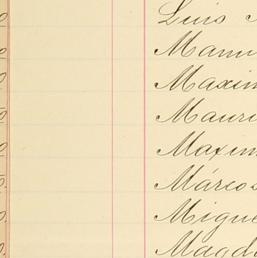 Luis
Manu
Maxim
Mauri
Maxim
Márcos
Migue
Magda